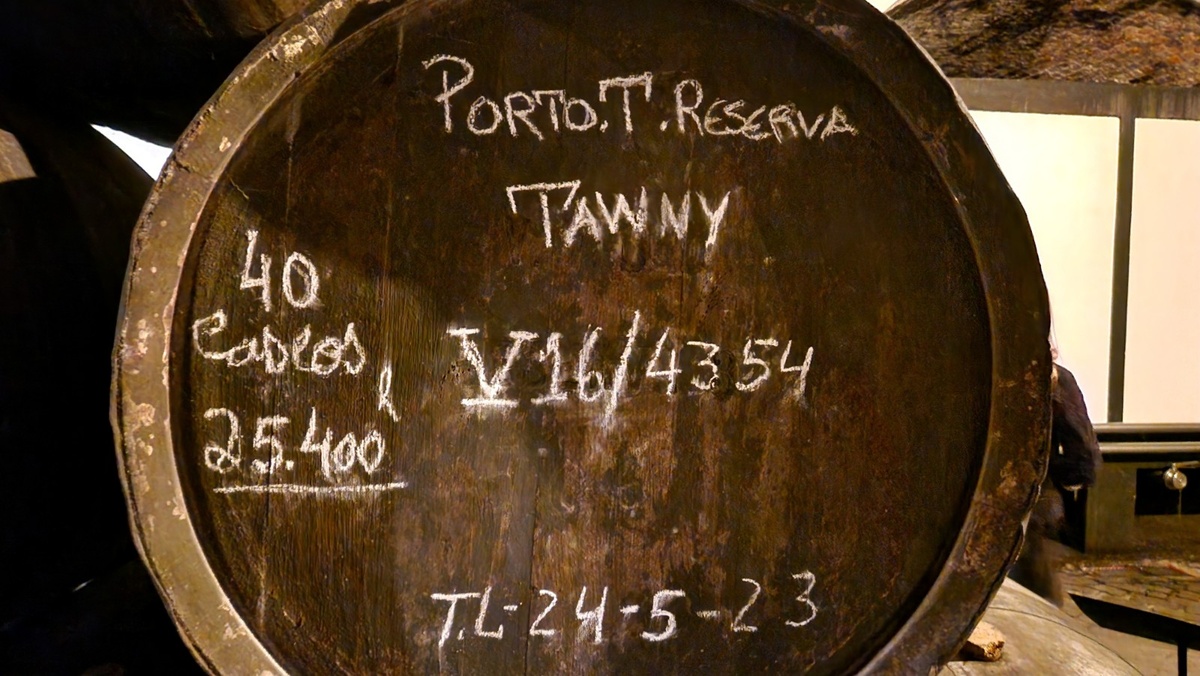 PORTO.T.RESERVA
TAWNY
40
Cascos
l
25.400
V16/4354
T.L-24-5-23